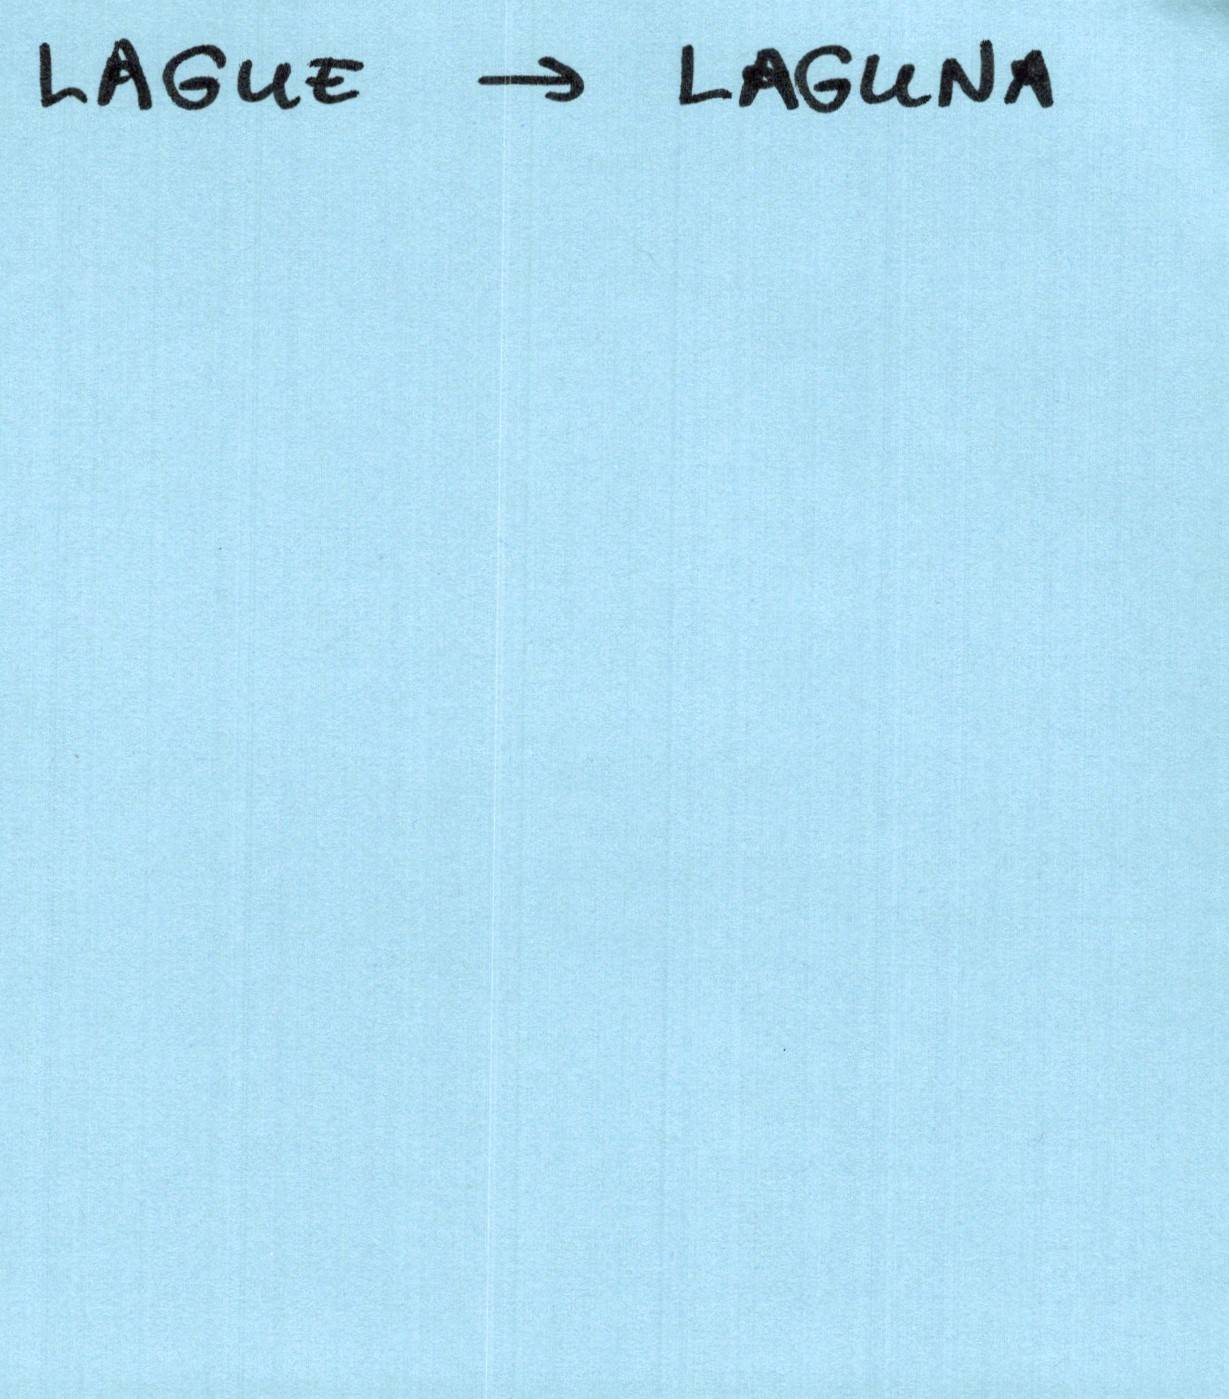 LAGUE → LAGUNA